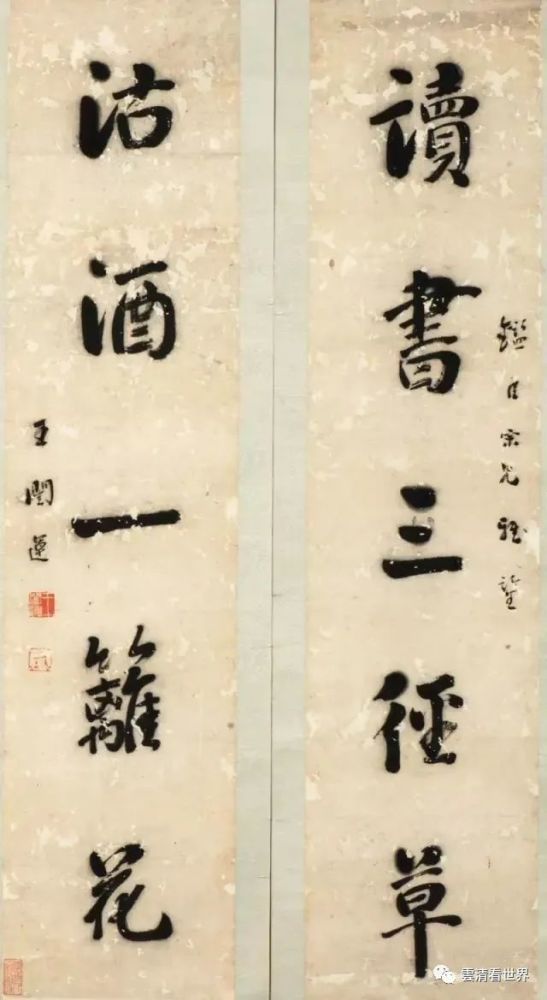 鑑𦣞宗兄雅鑒
讀書三徑草
沽酒一籬花
王闓運
雲清看世界